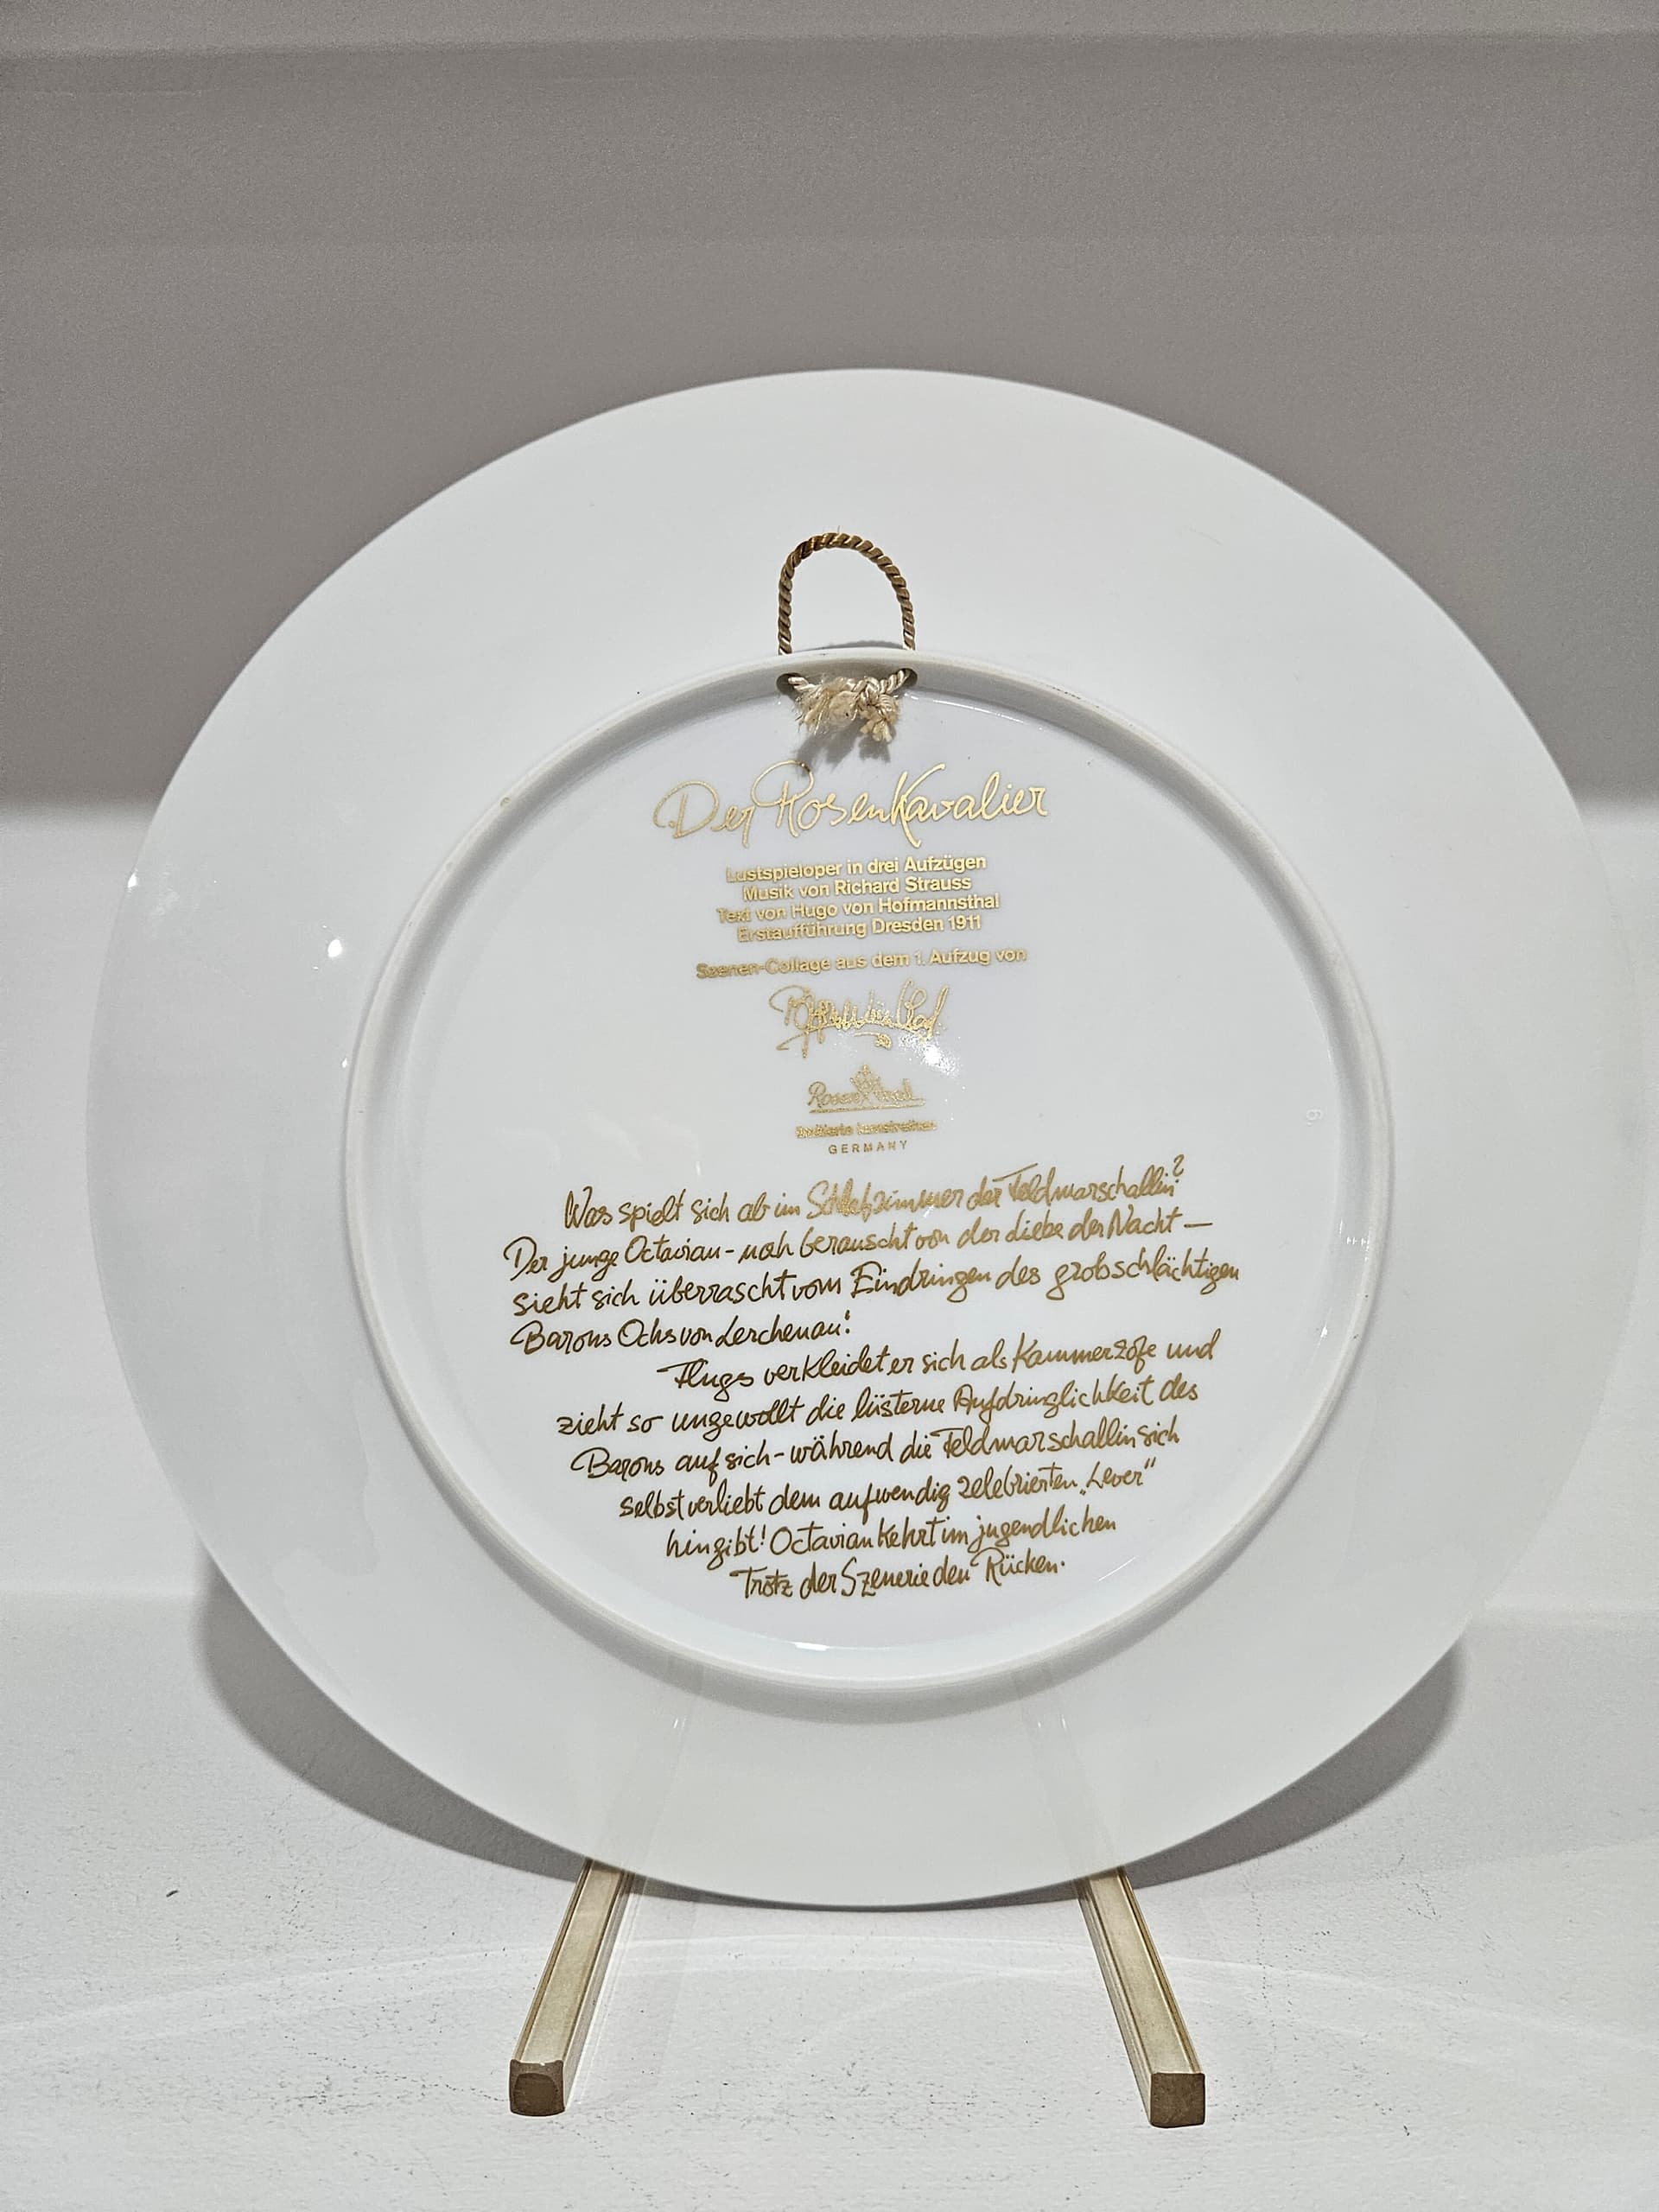 Der Rosenkavalier
Lustspieloper in drei Aufzügen
Musik von Richard Strauss
Text von Hugo von Hofmannsthal
Erstaufführung Dresden 1911
Szenen-Collage aus dem 1. Aufzug von
Rosenthal
limitierte kunstreihen
GERMANY
Was spielt sich ab im Schlafzimmer der Feldmarschallin?
Der junge Octavian - noch berauscht von der Liebe der Nacht —
sieht sich überrascht vom Eindringen des grobschlächtigen
Barons Ochs von Lerchenau!
Flugs verkleidet er sich als Kammerzofe und
zieht so ungewollt die lüsterne Aufdringlichkeit des
Barons auf sich - während die Feldmarschallin sich
selbstverliebt dem aufwendig zelebrierten „Lever“
hingibt! Octavian kehrt im jugendlichen
Trotz der Szenerie den Rücken.